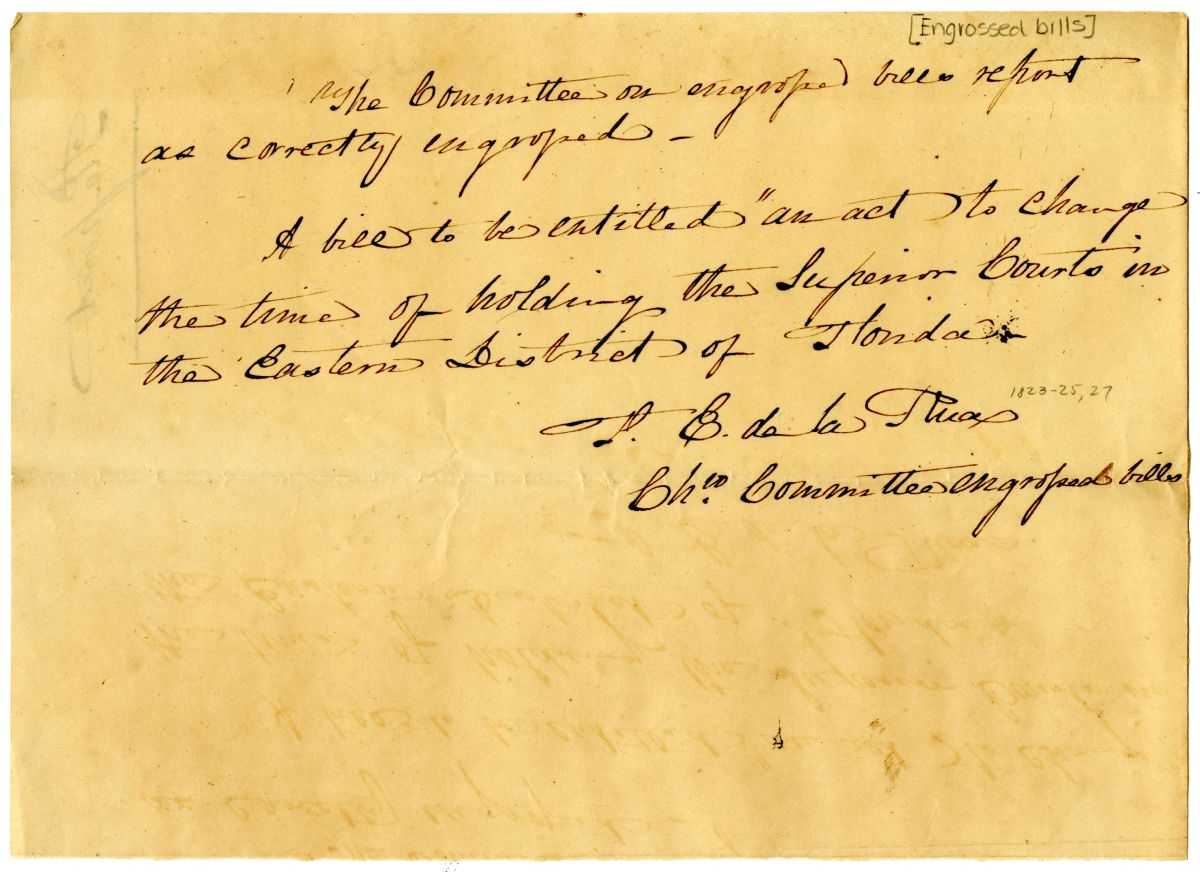 [Engrossed bills]
The Committee on engrossed bills report
as correctly engrossed –
A bill to be entitled "an act to change
the time of holding the Superior Courts in
the Eastern District of Florida –
1823-25, 27
F. E. de la Rua
Chn. Committee engrossed bills